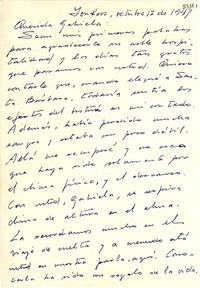 Yonkers, octubre 12 de 1947
Querida Gabriela:
Sean mis primeras palabras
para agradecerle su noble hospi-
talidad y los días tan gratos
que pasamos con usted. Quiero
contarle que, cuando llegué a San-
ta Bárbara, todavía sentía los
efectos del
Además, había perdido mucha
sangre y estaba un poco débil.
Allá me recuperé, y no creo
que haya sido solamente por
el clima físico, y el descanso.
Con usted, Gabriela, se respira
clima de altura en el alma.
La recordamos mucho en el
viaje de vuelta y a menudo está
usted en nuestra charla, aquí. Cono-
cerla ha sido un regalo de la vida.